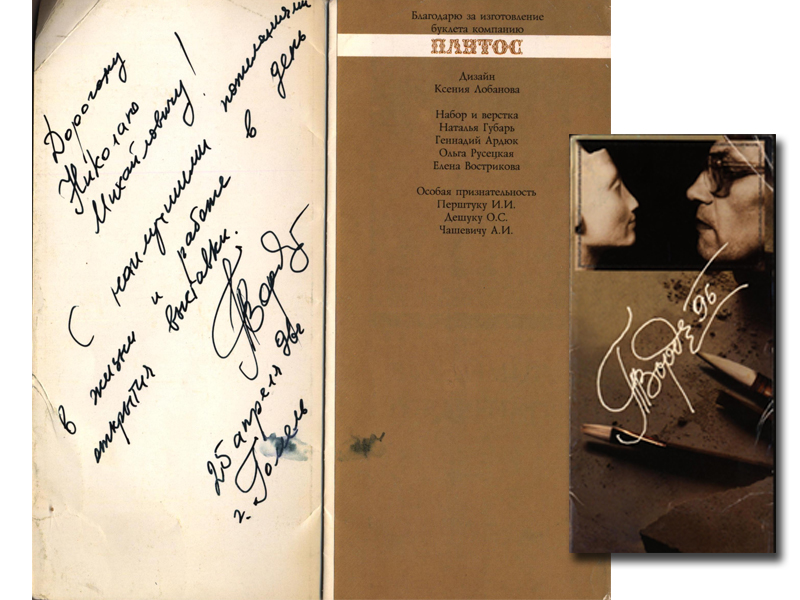 Дорогому
Николаю
Михайловичу!
С наилучшими пожеланиями
в жизни и работе в день
открытия выставки.
25 апреля 96г
г. Гомель
Благодарю за изготовление
буклета компанию
ПЛАТОС
Дизайн
Ксения Лобанова
Набор и верстка
Наталья Губарь
Геннадий Ардюк
Ольга Русецкая
Елена Вострикова
Особая признательность
Перштуку И.И.
Дешуку О.С.
Чашевичу А.И.
96